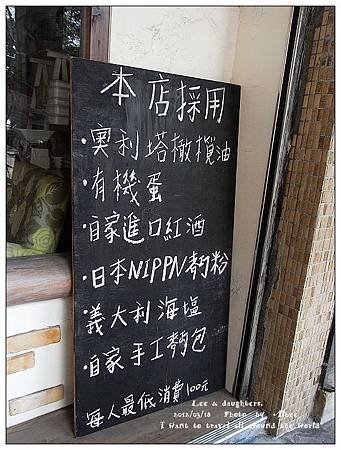 本店採用
·奧利塔橄欖油
·有機蛋
·自家進口紅酒
·日本NIPPN麵粉
·義大利海塩
·自家手工麵包
每人最低消費100元
Lee & daughters.
2012/03/18 Photo by
I want to travel all around the world